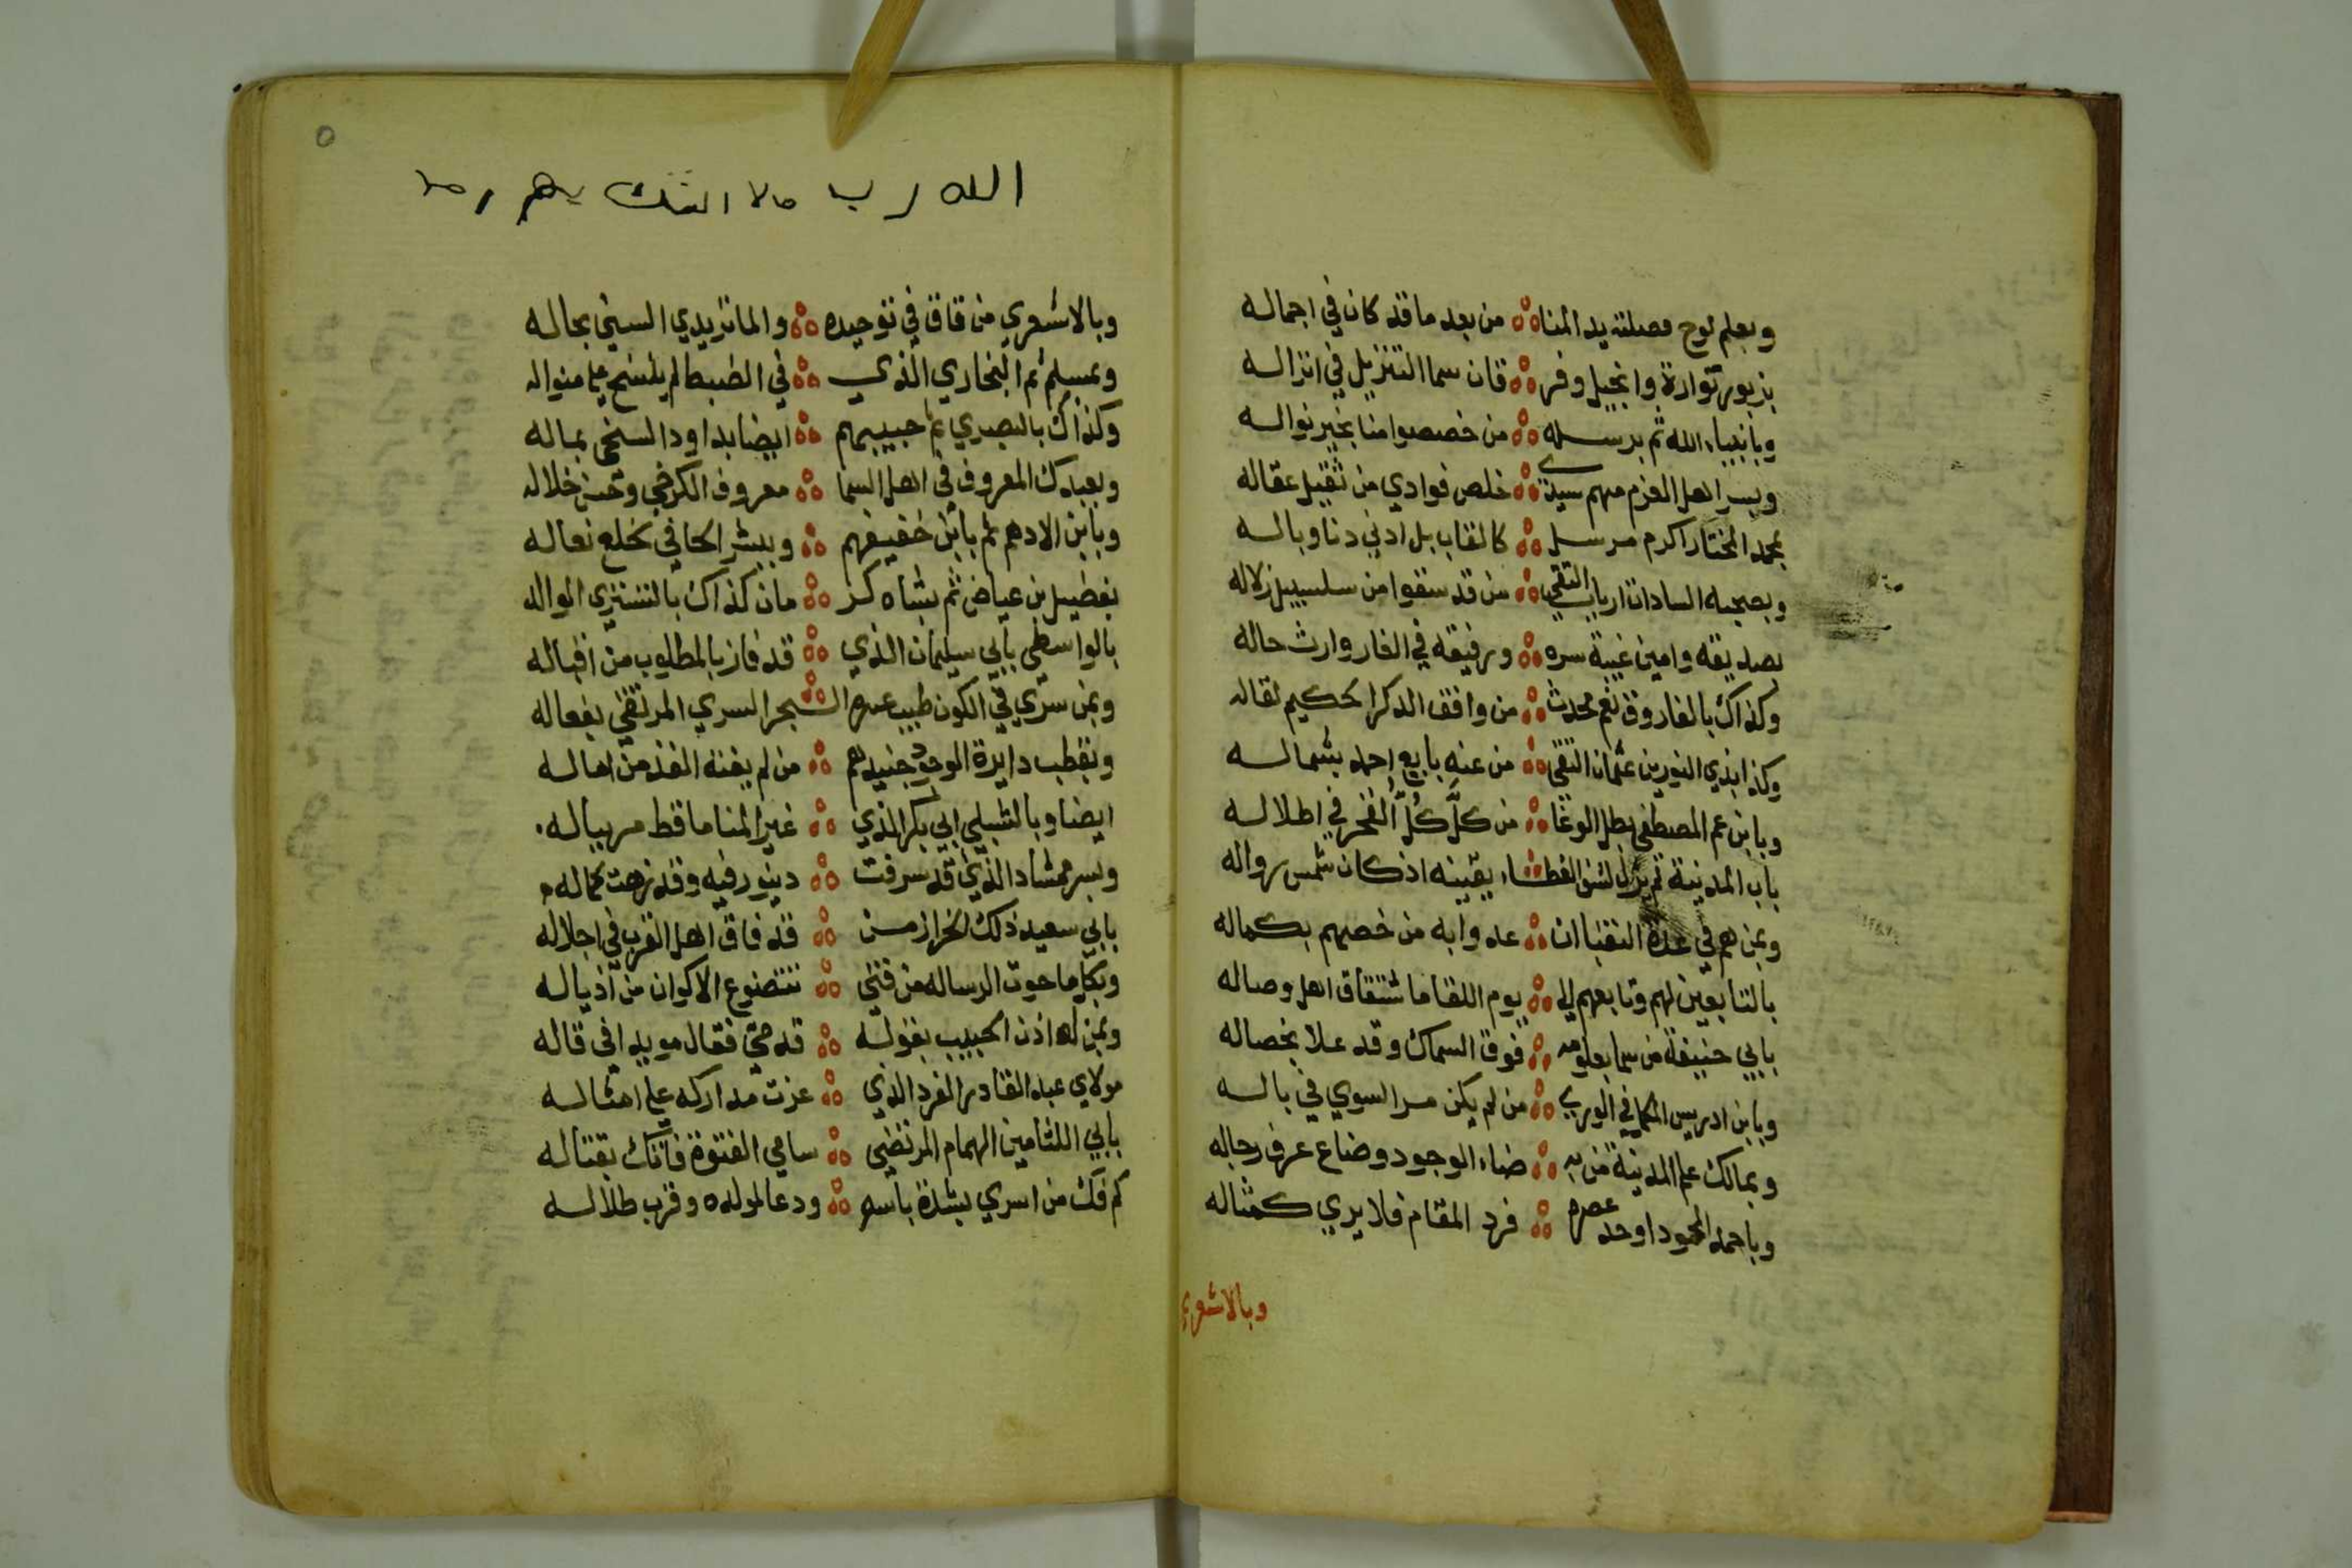 وبعلم لوح فصلته يد المنا من بعد ما قد كان في اجماله
بزبور توارة وانجيل وفر قان سما التنزيل في انزاله
وبانبياء الله ثم برسله من خصصوا منا بخير نواله
وبسر اهل العزم منهم سيدي خلص فوادي من ثقيل عقاله
بمحمد المختار اكرم مرسل كالقاب بل ادني دنا وباله
وبصحبه السادات ارباب التقي من قد سقوا من سلسبيل زلاله
بصديقه وامين غيبة سره ورفيقه في الغار وارث حاله
وكذاك بالفاروق نعم محدث من وافق الذكر الحكيم لقاله
وكذا بذي النورين عثمان التقي من عنه بايع احمد بشماله
وبابن عم المصطفي بطل الوغا من كلَّ كُلُّ الفخر في اطلاله
باب المدينة لم يزل لشق الغطاء يقينه اذ كان شمس زواله
وبمن هم في عدة النقبا ان عدوا به من خصهم بكماله
بالتابعين لهم وتابعهم الي يوم اللقا ما شتقاق اهل وصاله
بابي حنيفة من سما بعلومه فوق السماك وقد علا بخصاله
وبابن ادريس المكا في الوري من لم يكن مر السوي في باله
وبمالك علم المدينة من به ضاء الوجود وضاع عرف رجاله
وباحمد المحمود اوحد عصره فرد المقام فلا يري كمثاله
وبالاشعري
٥
الله رب
وبالاشعري من فاق في توحيده والماتريدي السني بحاله
وبمسلم ثم البخاري الذي في الضبط لم ينسج علي منواله
وكذاك بالبصري ثم حبيبهم ايضا بداود السخي بماله
وبعبدك المعروف في اهل السما معروف الكرخي وحسن خلاله
وبابن الادهم ثم بابن خفيفهم وببشر الحافي بخلع نعاله
بفضيل بن عياض ثم بشاه كر مان كذاك بالتستري الواله
بالواسطي بابي سليمان الذي قد فاز بالمطلوب من اقباله
وبمن سري في الكون طيب عبيره السحر السري المرتقي بفعاله
وبقطب دايرة الوجود جنيدهم من لم يفته الفذ من افعاله
ايضا وبالشبلي ابي بكر الذي غير المنا ما قط مر بباله
وبسر ممشاد الذي قد سرفت دينور فيه وقد زهت بكماله
بابي سعيد ذلك الخراز من قد فاق اهل القرب في اجلاله
وبكل ما حوت الرساله من فتي تتضوع الاكوان من اذياله
وبمن له اذن الحبيب بقوله قد مي فقال مويدا في قاله
مولاي عبد القادر الفرد الذي عزت مداركه علي امثاله
بابي اللثامين الهمام المرتضي سامي الفتوة فاتك بقتاله
كم فك من اسري بشدة باسه ودعا لمولده وقرب طلاله